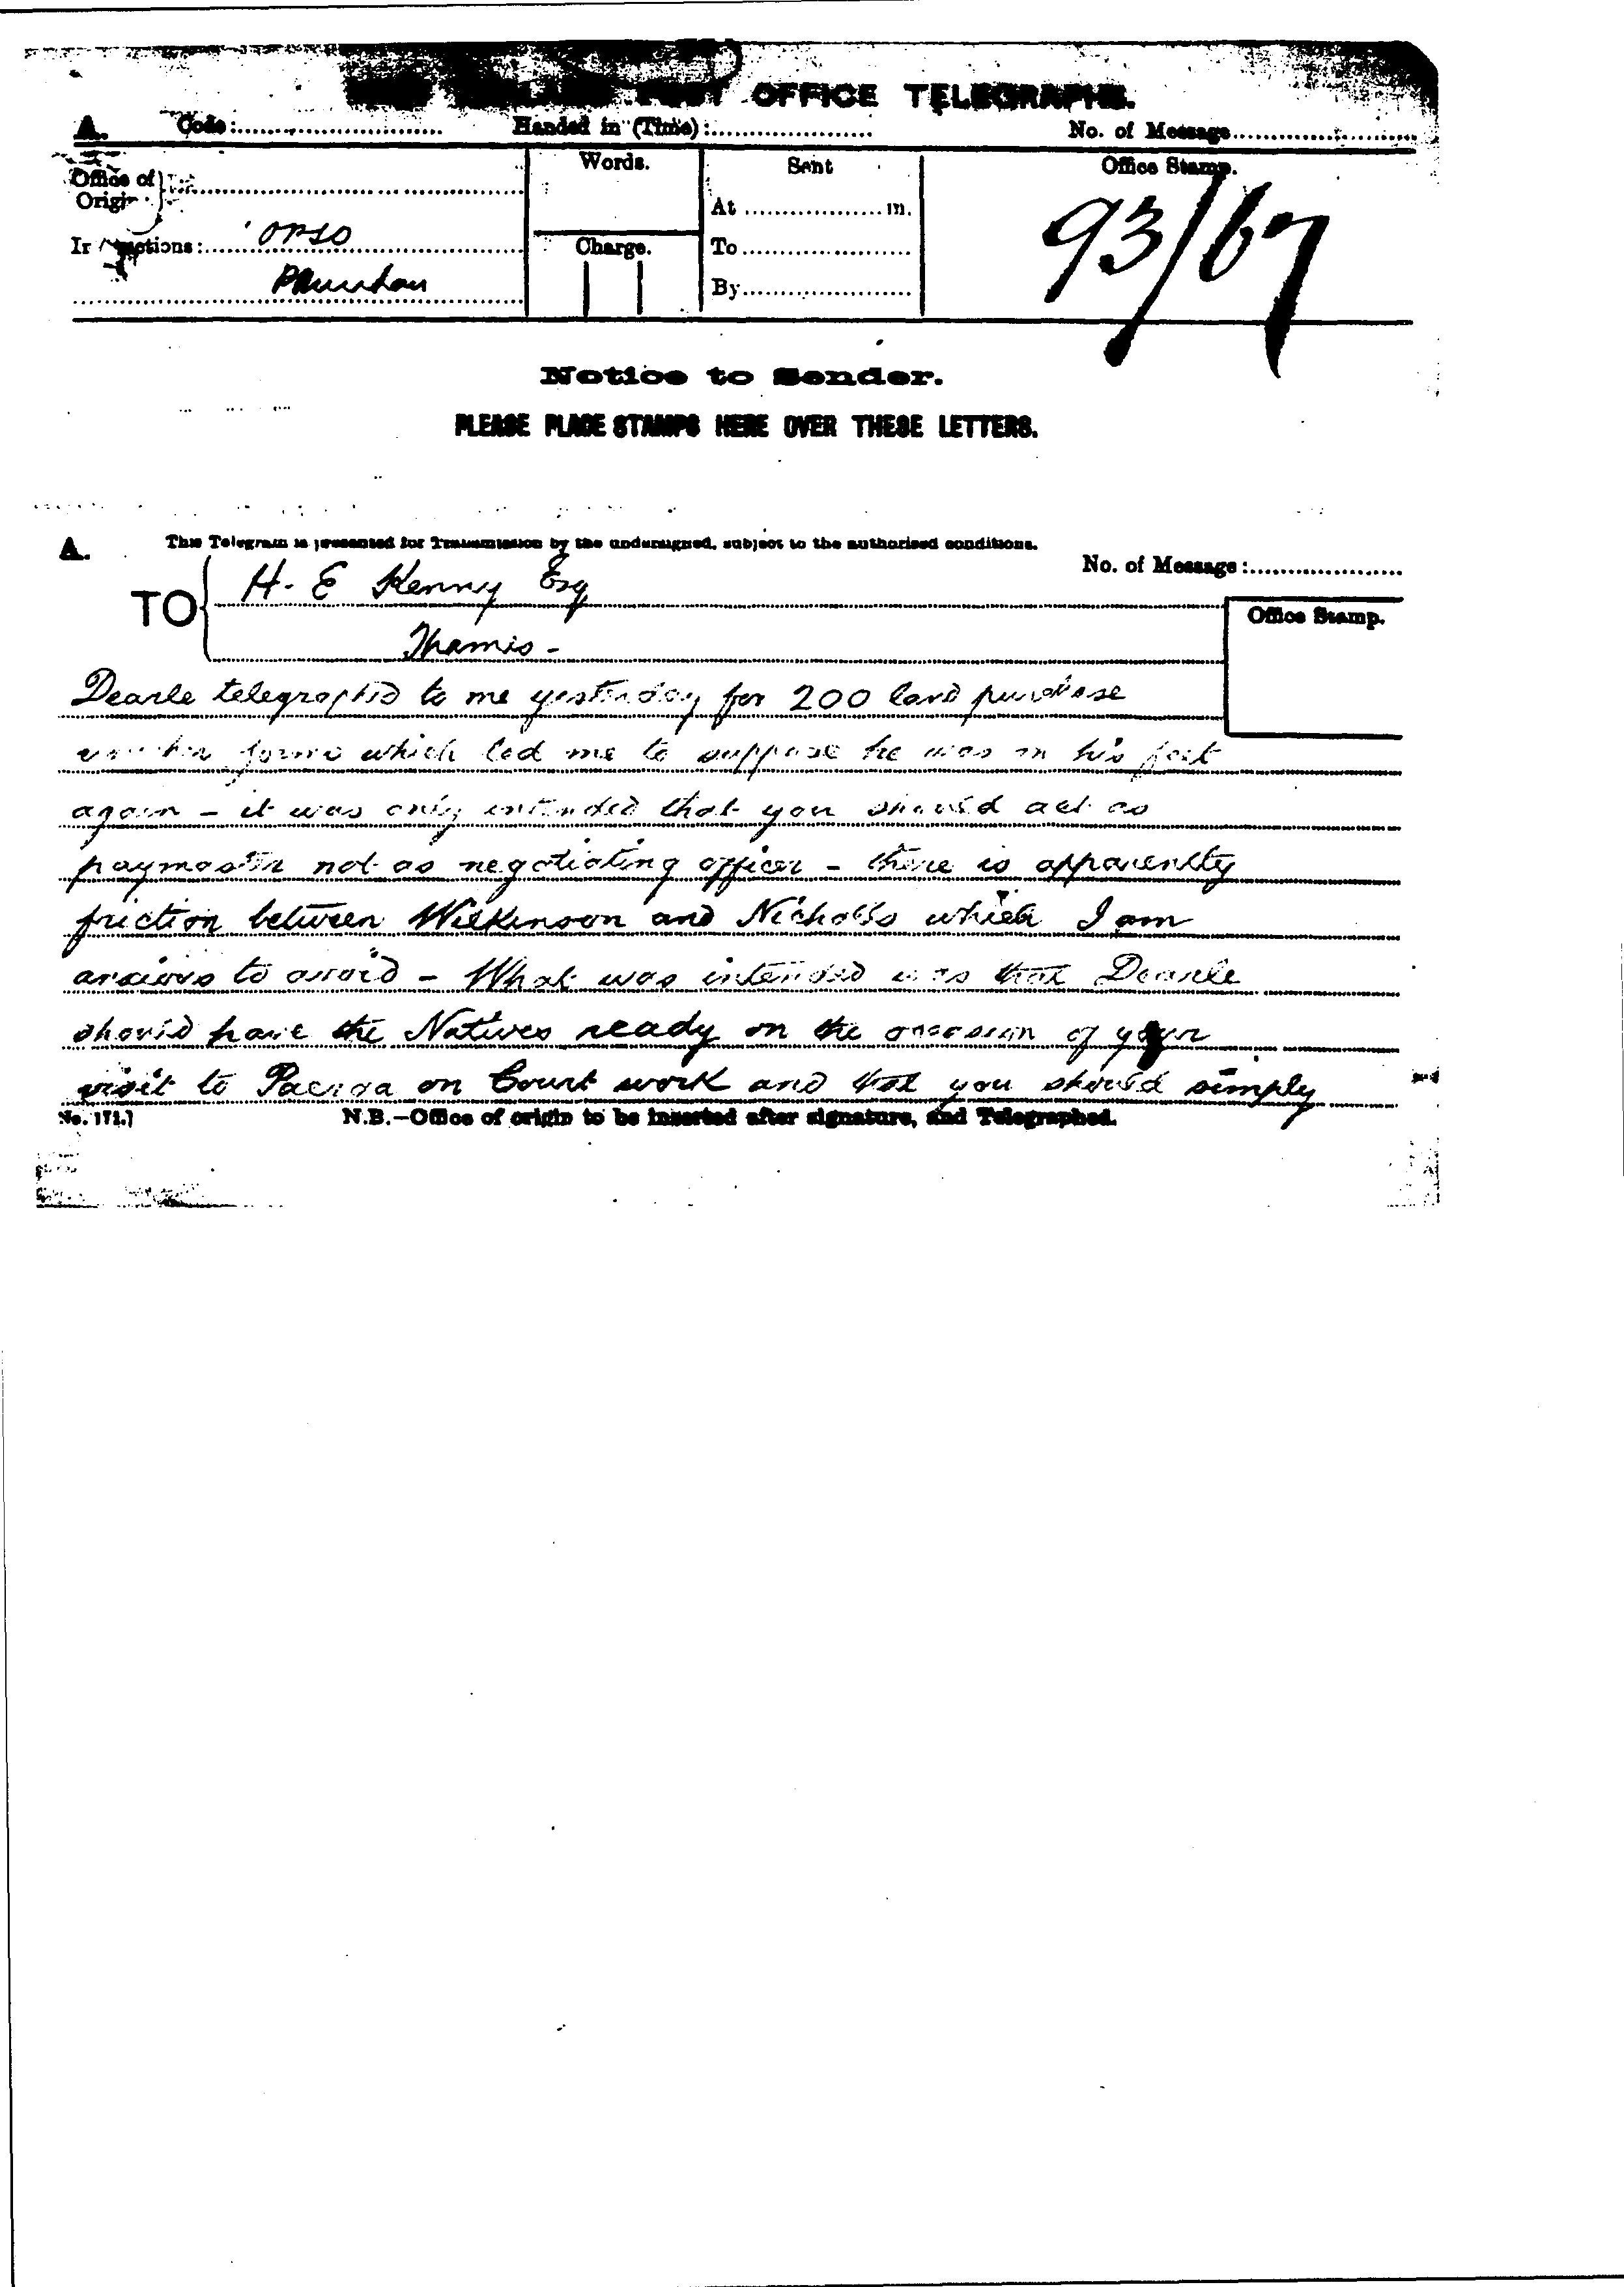 POST OFFICE TELEGRAPHS.
A. Code:.......... Handed in (Time):.......... No. of Message..........
Office of Origin
Words.
Sent
Office Stamp.
At .......... m.
Instructions: OPSO
Charge.
To..........
By..........
93/67
Notice to Sender.
PLEASE PLACE STAMPS HERE OVER THESE LETTERS.
A. This Telegram is presented for Transmission by the undersigned, subject to the authorised conditions.
No. of Message:..........
TO H. E Kenny Esq
Office Stamp.
Thames -
Dearle telegraphed to me yesterday for 200 land purchase
voucher forms which led me to suppose he was on his feet
again - it was only intended that you should act as
paymaster not as negotiating officer - there is apparently
friction between Wilkinson and Nicholls which I am
anxious to avoid - What was intended was that Dearle
should have the Natives ready on the occasion of your
visit to Paeroa on Court work and that you should simply
No. 171.]
N.B.-Office of origin to be inserted after signature, and Telegraphed.